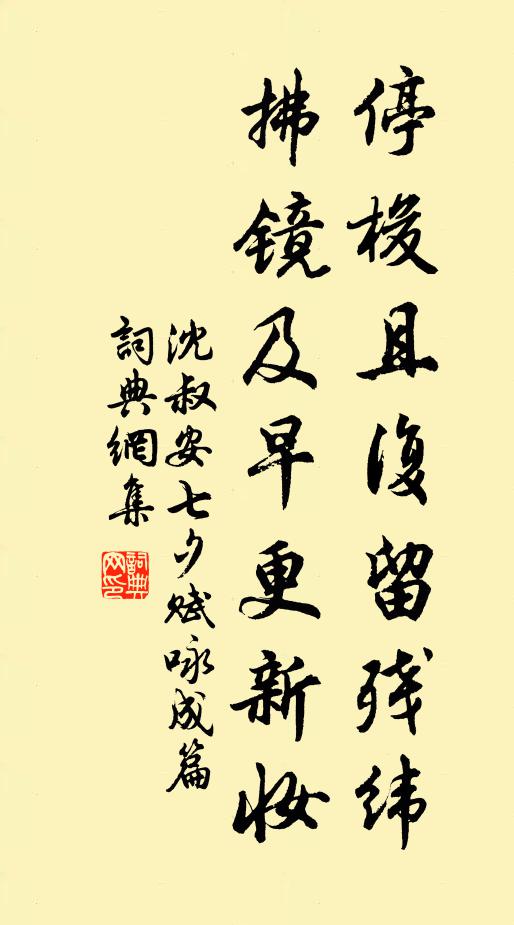 停梭且復留残纬
拂镜及早更新妆
沈叔安七夕赋咏成篇
詞典網集
詞典
网印